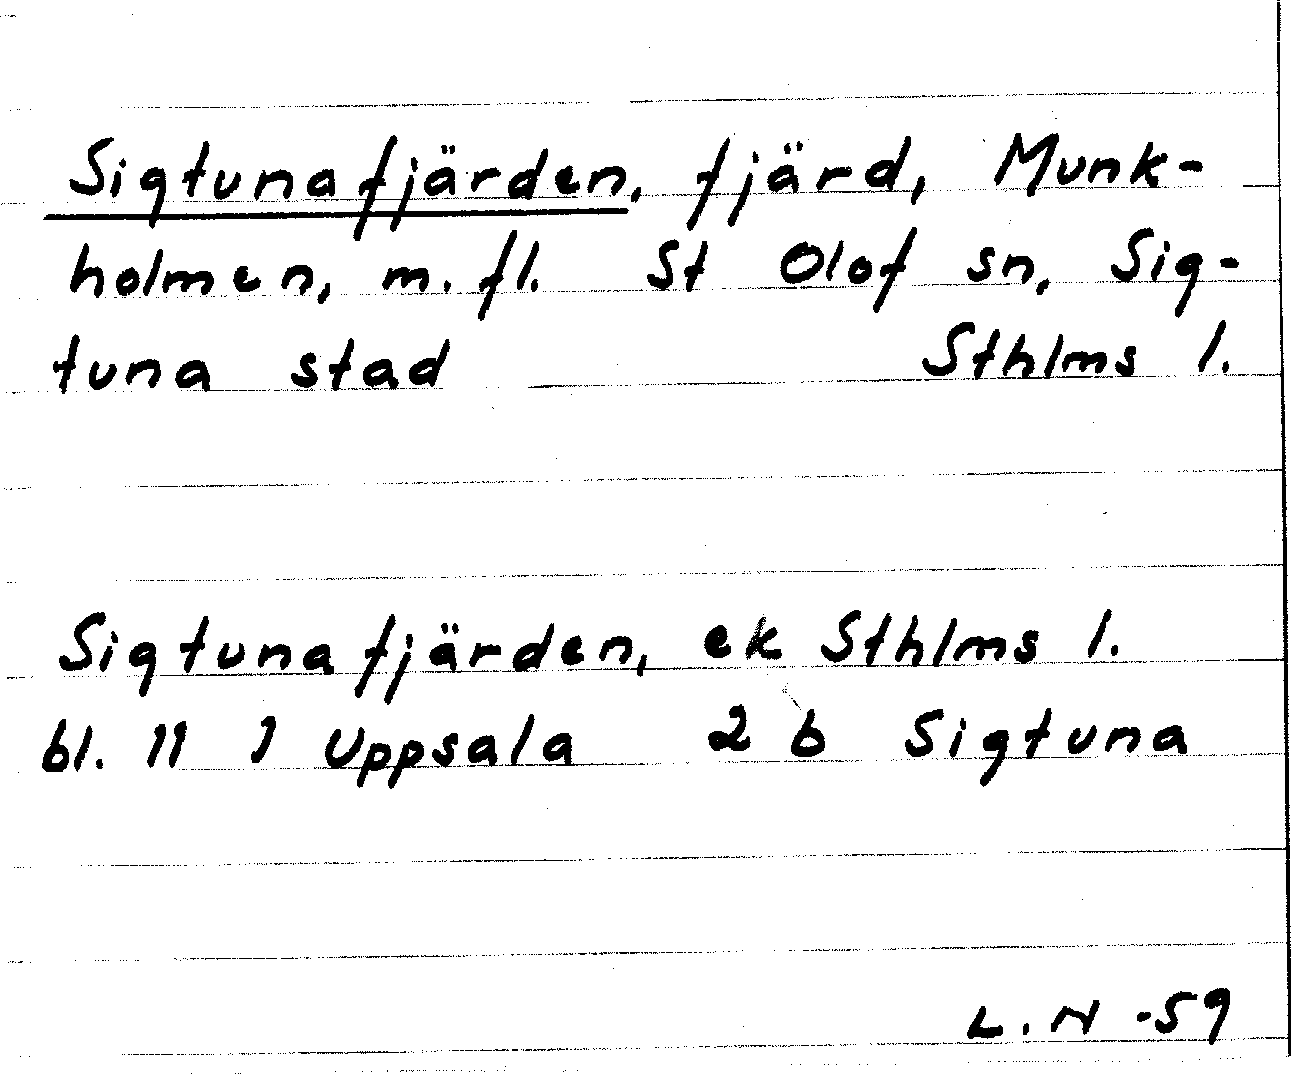 Sigtunafjärden, fjärd, Munk-
holmen, m.fl. St Olof sn, Sig-
tuna stad Sthlms l.
Sigtunafjärden, ek Sthlms l.
bl. 11 J Uppsala 2 b Sigtuna
L.N -59